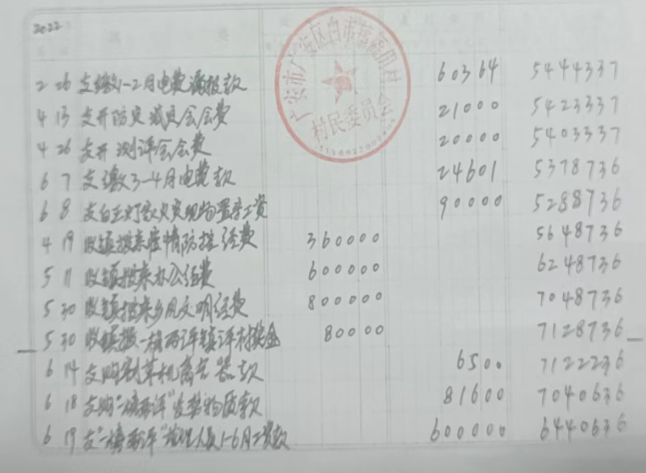 2022
2 26 支缴1-2月电费 款 60364 5444337
4 13 支开防灾减灾会会费 21000 5423337
4 26 支开测评会会费 20000 5403337
6 7 支缴3-4月电费款 24601 5378736
6 8 支白玉灯 火灾现场 工资 90000 5288736
4 19 收镇拨来疫情防控经费 360000 5648736
5 11 收镇拨来办公经费 600000 6248736
5 30 收镇拨来乡风文明经费 800000 7048736
5 30 收镇拨一 两评镇评 奖金 80000 7128736
6 14 支购割草机 款 6500 7122236
6 18 支购"一 两评"发奖物质款 81600 7040636
6 19 支"一 两评" 人员1-6月工资款 600000 6440636
广安市广安区白市镇 村
村民委员会